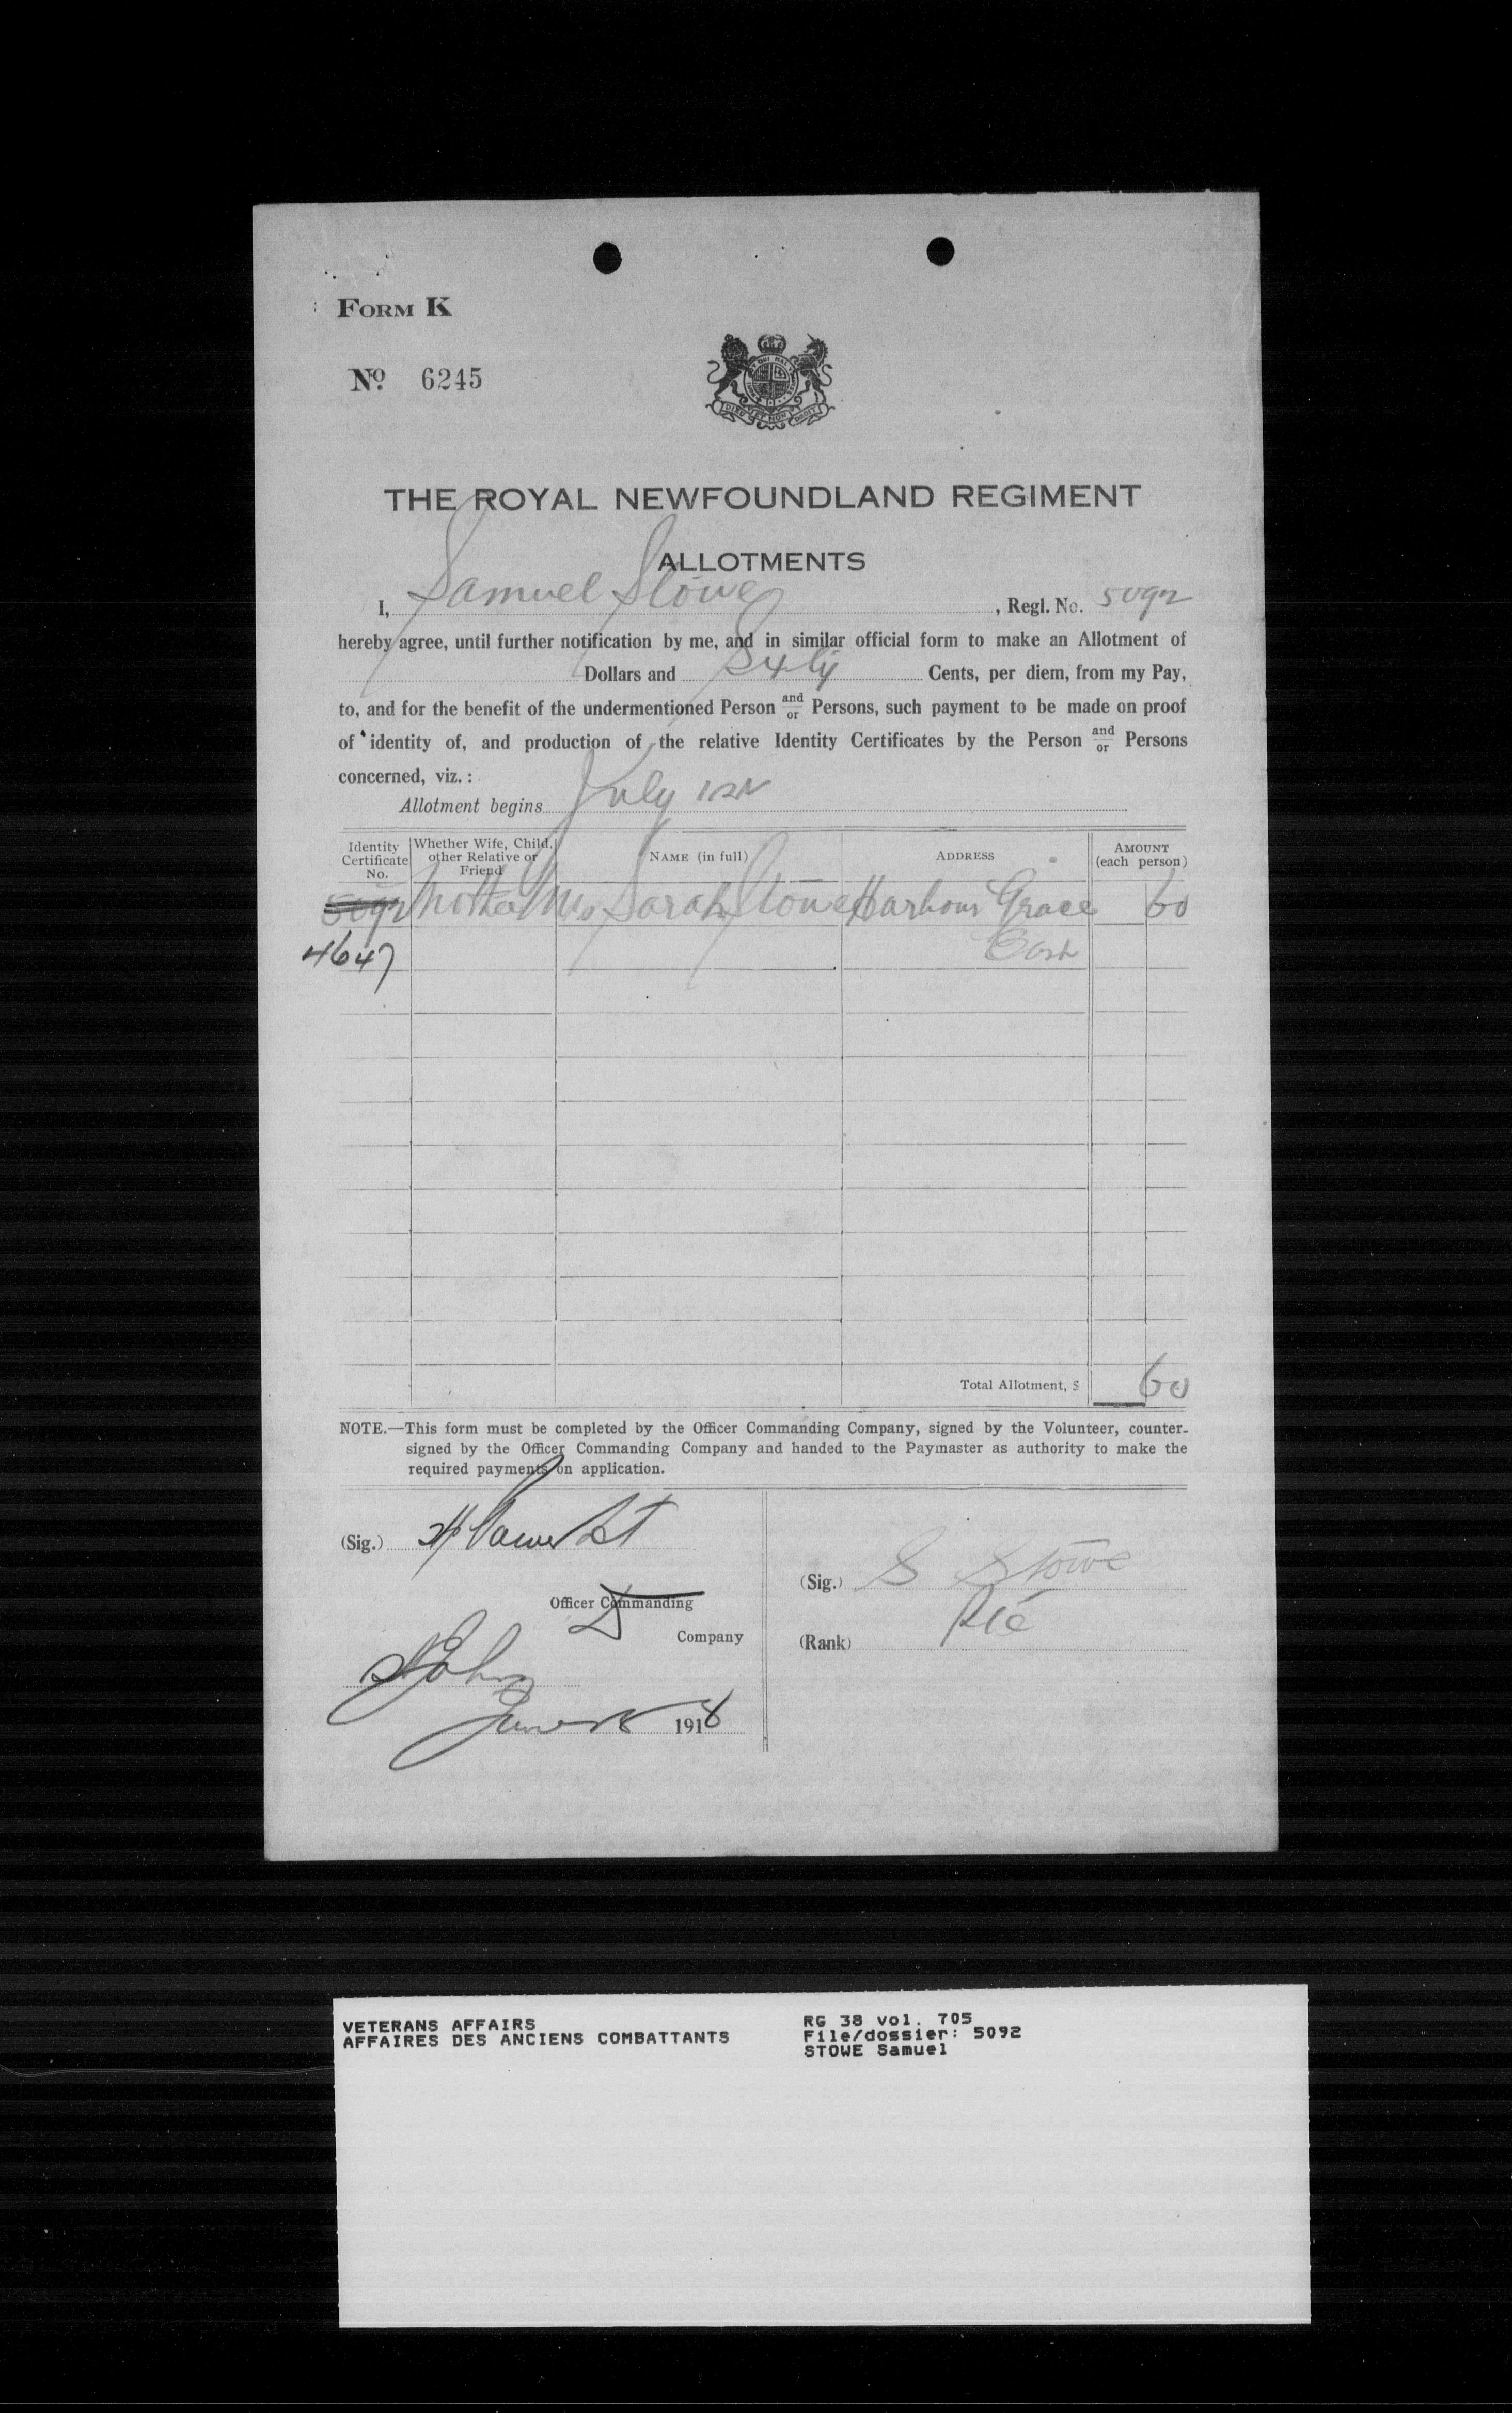 FORM K
No. 6245
THE ROYAL NEWFOUNDLAND REGIMENT
ALLOTMENTS
I, Samuel Stowe, Regl. No. 5092
hereby agree, until further notification by me, and in similar official form to make an Allotment of
Dollars and Sixty Cents, per diem, from my Pay,
to, and for the benefit of the undermentioned Person and/or Persons, such payment to be made on proof
of identity of, and production of the relative Identity Certificates by the Person and/or Persons
concerned, viz.:
Allotment begins July 1st
Identity Certificate No. Whether Wife, Child, other Relative or Friend NAME (in full) ADDRESS AMOUNT (each person)
5092 Mother Mrs Sarah Stowe Harbour Grace 60
4647 East
Total Allotment, $ 60
NOTE.—This form must be completed by the Officer Commanding Company, signed by the Volunteer, counter-
signed by the Officer Commanding Company and handed to the Paymaster as authority to make the
required payments on application.
(Sig.) Lt
(Sig.) S Stowe
Officer Commanding
Company
(Rank) Pte
St Johns
June 1918
VETERANS AFFAIRS
AFFAIRES DES ANCIENS COMBATTANTS
RG 38 vol. 705
File/dossier: 5092
STOWE Samuel